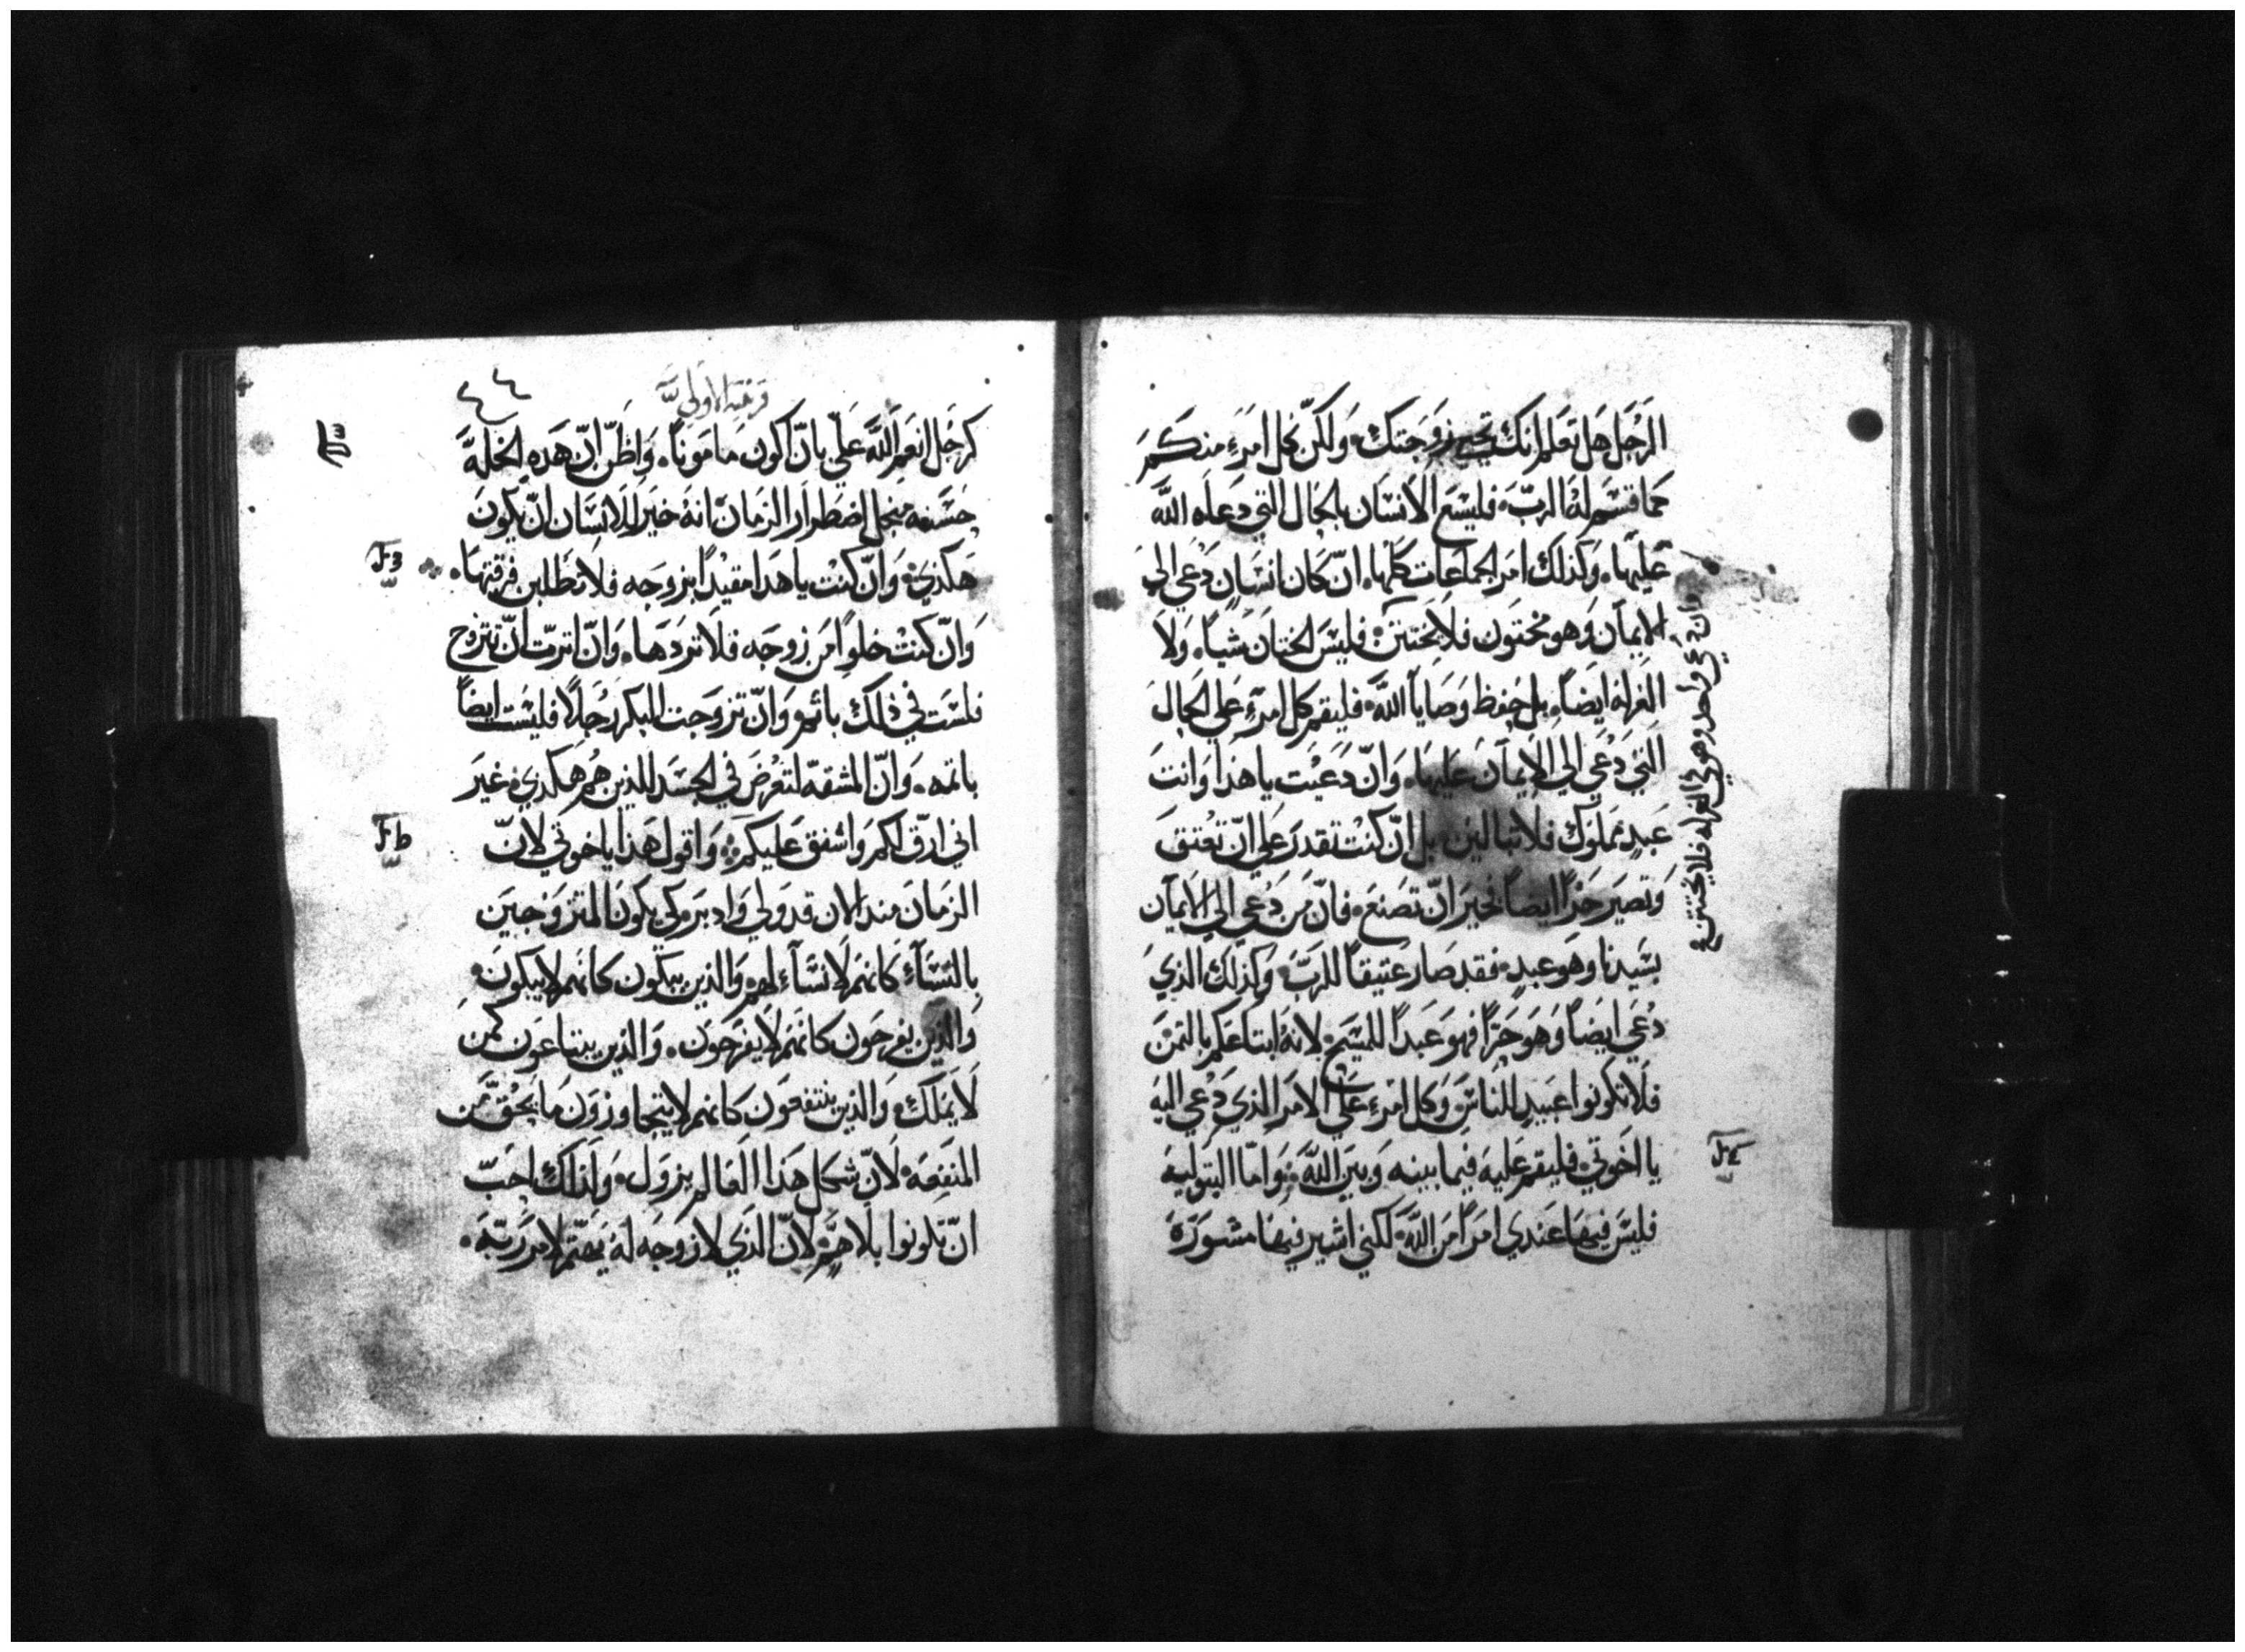 الرجل هل تعلم انك تحيي زوجتك ولكن كل امرء منكم
كما قسم له الرب فليسع الانسان بالحال التي دعاه الله
عليها وكذلك امر الجماعات كلها ان كان انسان دعي الي
الايمان وهو مختون فلا يختتن فليس الختان شيا ولا
الغرله ايضا بل حفظ وصايا الله فليقم كل امرء علي الحال
التي دعي الي الايمان عليها وان دعيت ياهذا وانت
عبد مملوك فلا تبالين بل ان كنت تقدر علي ان تعتق
وتصير حرا ايضا فخير ان تصنع فان من دعي الي الايمان
بسيدنا وهو عبد فقد صار عتيقا للرب وكذلك الذي
دعي ايضا وهو حرا فهو عبدا للمسيح لانه ابتاعكم بالثمن
فلا تكونوا عبيد للناس وكل امرء علي الامر الذي دعي اليه
يا اخوتي فليقم عليه فيما بينه وبين الله واما البتوليه
فليس فيها عندي امرا من الله لكني اشير فيها مشورة
وان دعي واحد وهو في الغرله فلا يختتن
قرنتيه الاولي
كرجل انعم الله علي بان اكون مامونا واظن ان هذه الخله
حسنه من اجل اضطرار الزمان انه خير للانسان ان يكون
هكذي وان كنت ياهذا مقيدا بزوجه فلا تطلبن فرقتها
وان كنت خلوا من زوجه فلا تردها وان اترت ان تتزوج
فلست في ذلك باثم وان تزوجت البكر رجلا فليست ايضا
باثمه وان المشقه لتعرض في الجسد للذين هم هكذي غير
اني ارق لكم واشفق عليكم واقول هذا يا اخوتي لان
الزمان منذ الان قد ولي وادبر كي يكون المتزوجين
بالنساء كانهم لا نساء لهم والذين يبكون كانهم لا يبكون
والذين يفرحون كانهم لا يفرحون والذين يبتاعون كمن
لا يملك والذين ينتفعون كانهم لا يتجاوزون ما يحق من
المنفعه لان شكل هذا العالم يزول ولذلك احب
ان تكونوا بلا هم لان الذي لا زوجه له يهتم لامر ربه